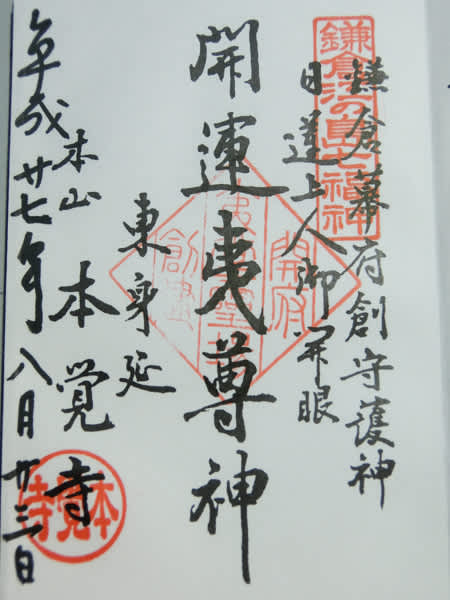 鎌倉江の島七福神
鎌倉幕府創守護神
日蓮上人御開眼
開運夷尊神
開府
創豊
東身延
本山 本覚寺
本覚寺
平成廿七年八月廿三日